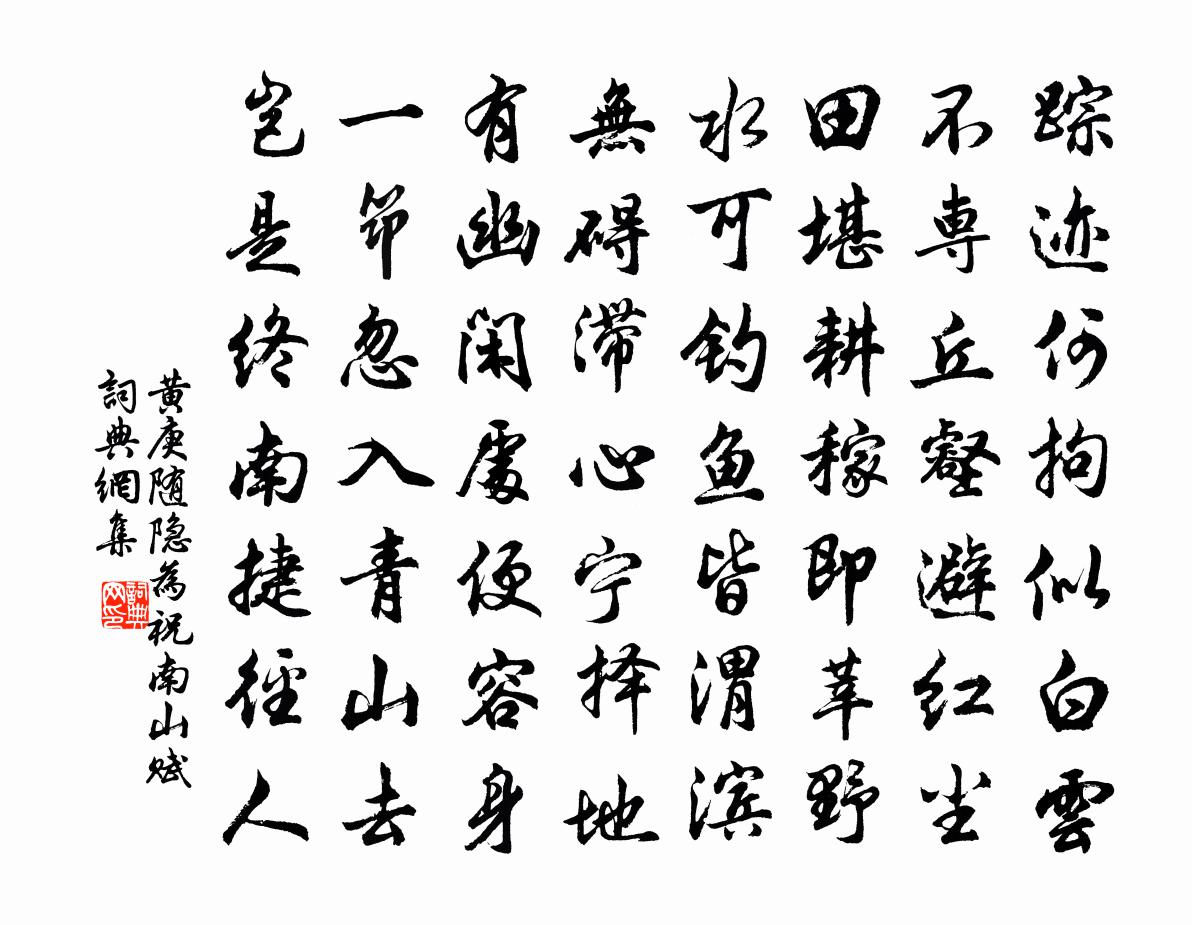 踪迹何拘似白雲
不專丘壑避红尘
田堪耕稼即莘野
水可钓鱼皆渭滨
無碍滞心宁择地
有幽闲處便容身
一筇忽入青山去
岂是终南捷径人
黄庚随隐為祝南山赋
詞典網集
詞典网印